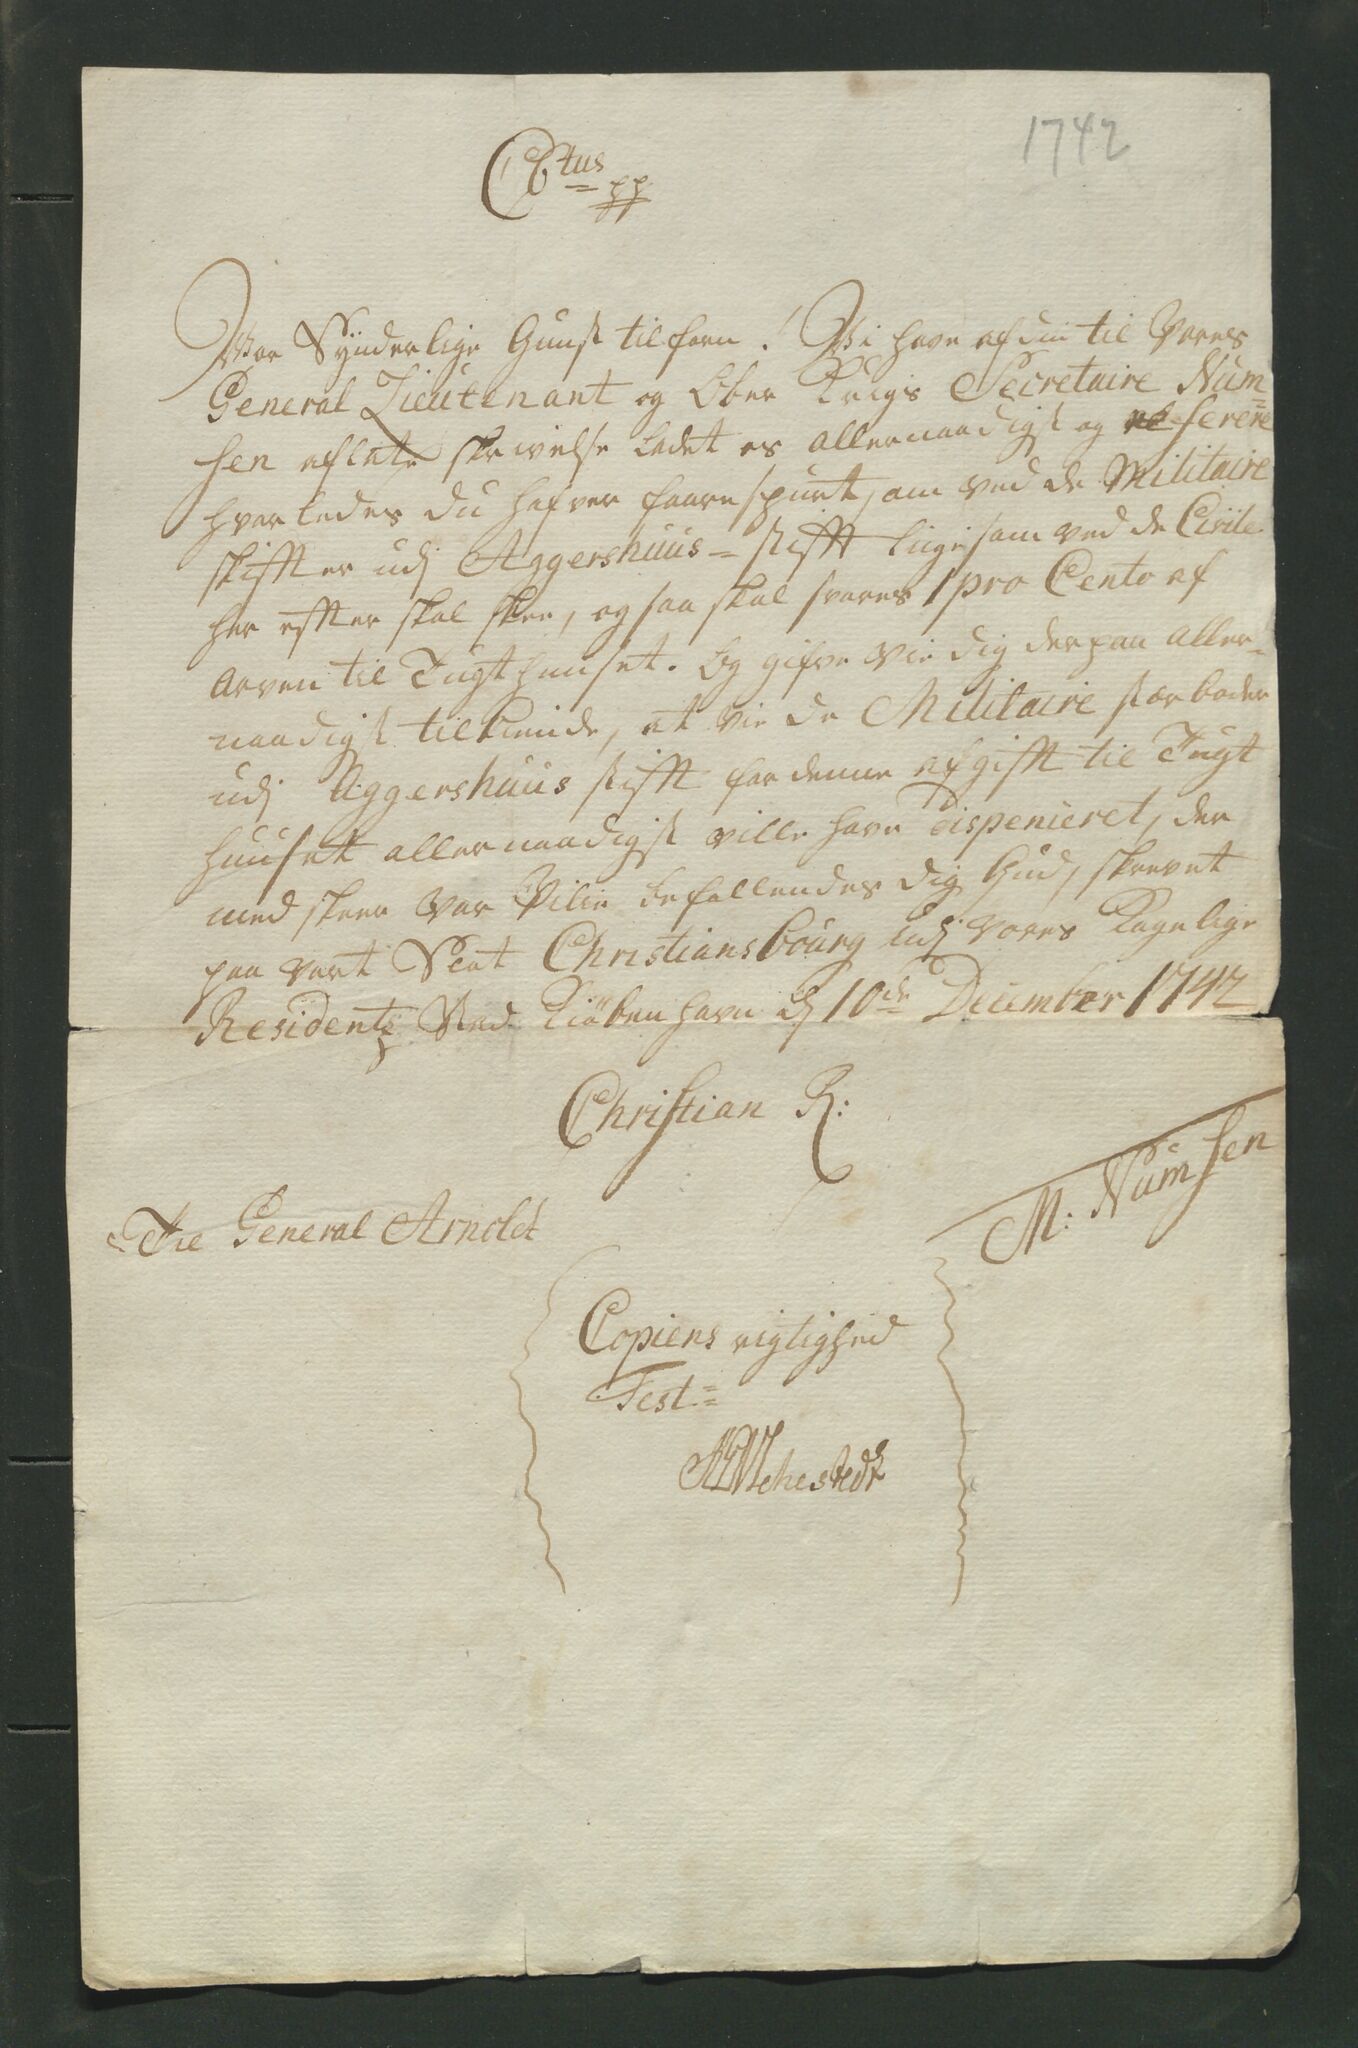 1742
C 6tus pp
Vor Synderlige Gunst tilforn! Vi have af din til Vores
General Lieutenant og Ober Krigs Secretaire Num=
sen afladte skrivelse ladet os allernaadigst og referere
hvorledes du hafver forespurt, om ved de Militaire
skiffter udj Aggershuus= stifft liigesom ved de Civile
her effter skal skee, ogsaa skal svares 1 pro Cento af
Arven til Tugthuuset. Og gifve Vie dig derpaa aller=
naadigst tilkiende, at Vie de Militaire stærboder
udj Aggershuus stifft for denne afgifft til Tugt
huuset allernaadigst ville have dispenceret, der
med skeer Vor Vilie befallendes dig Gud, skrevet
paa vort Slot Christiansbourg udj vores Kongelige
Residentz Stad Kiöbenhavn d 10de December 1742
Christian R:
M: Numsen
Til General Arnoldt
Copiens rigtighed
Test=